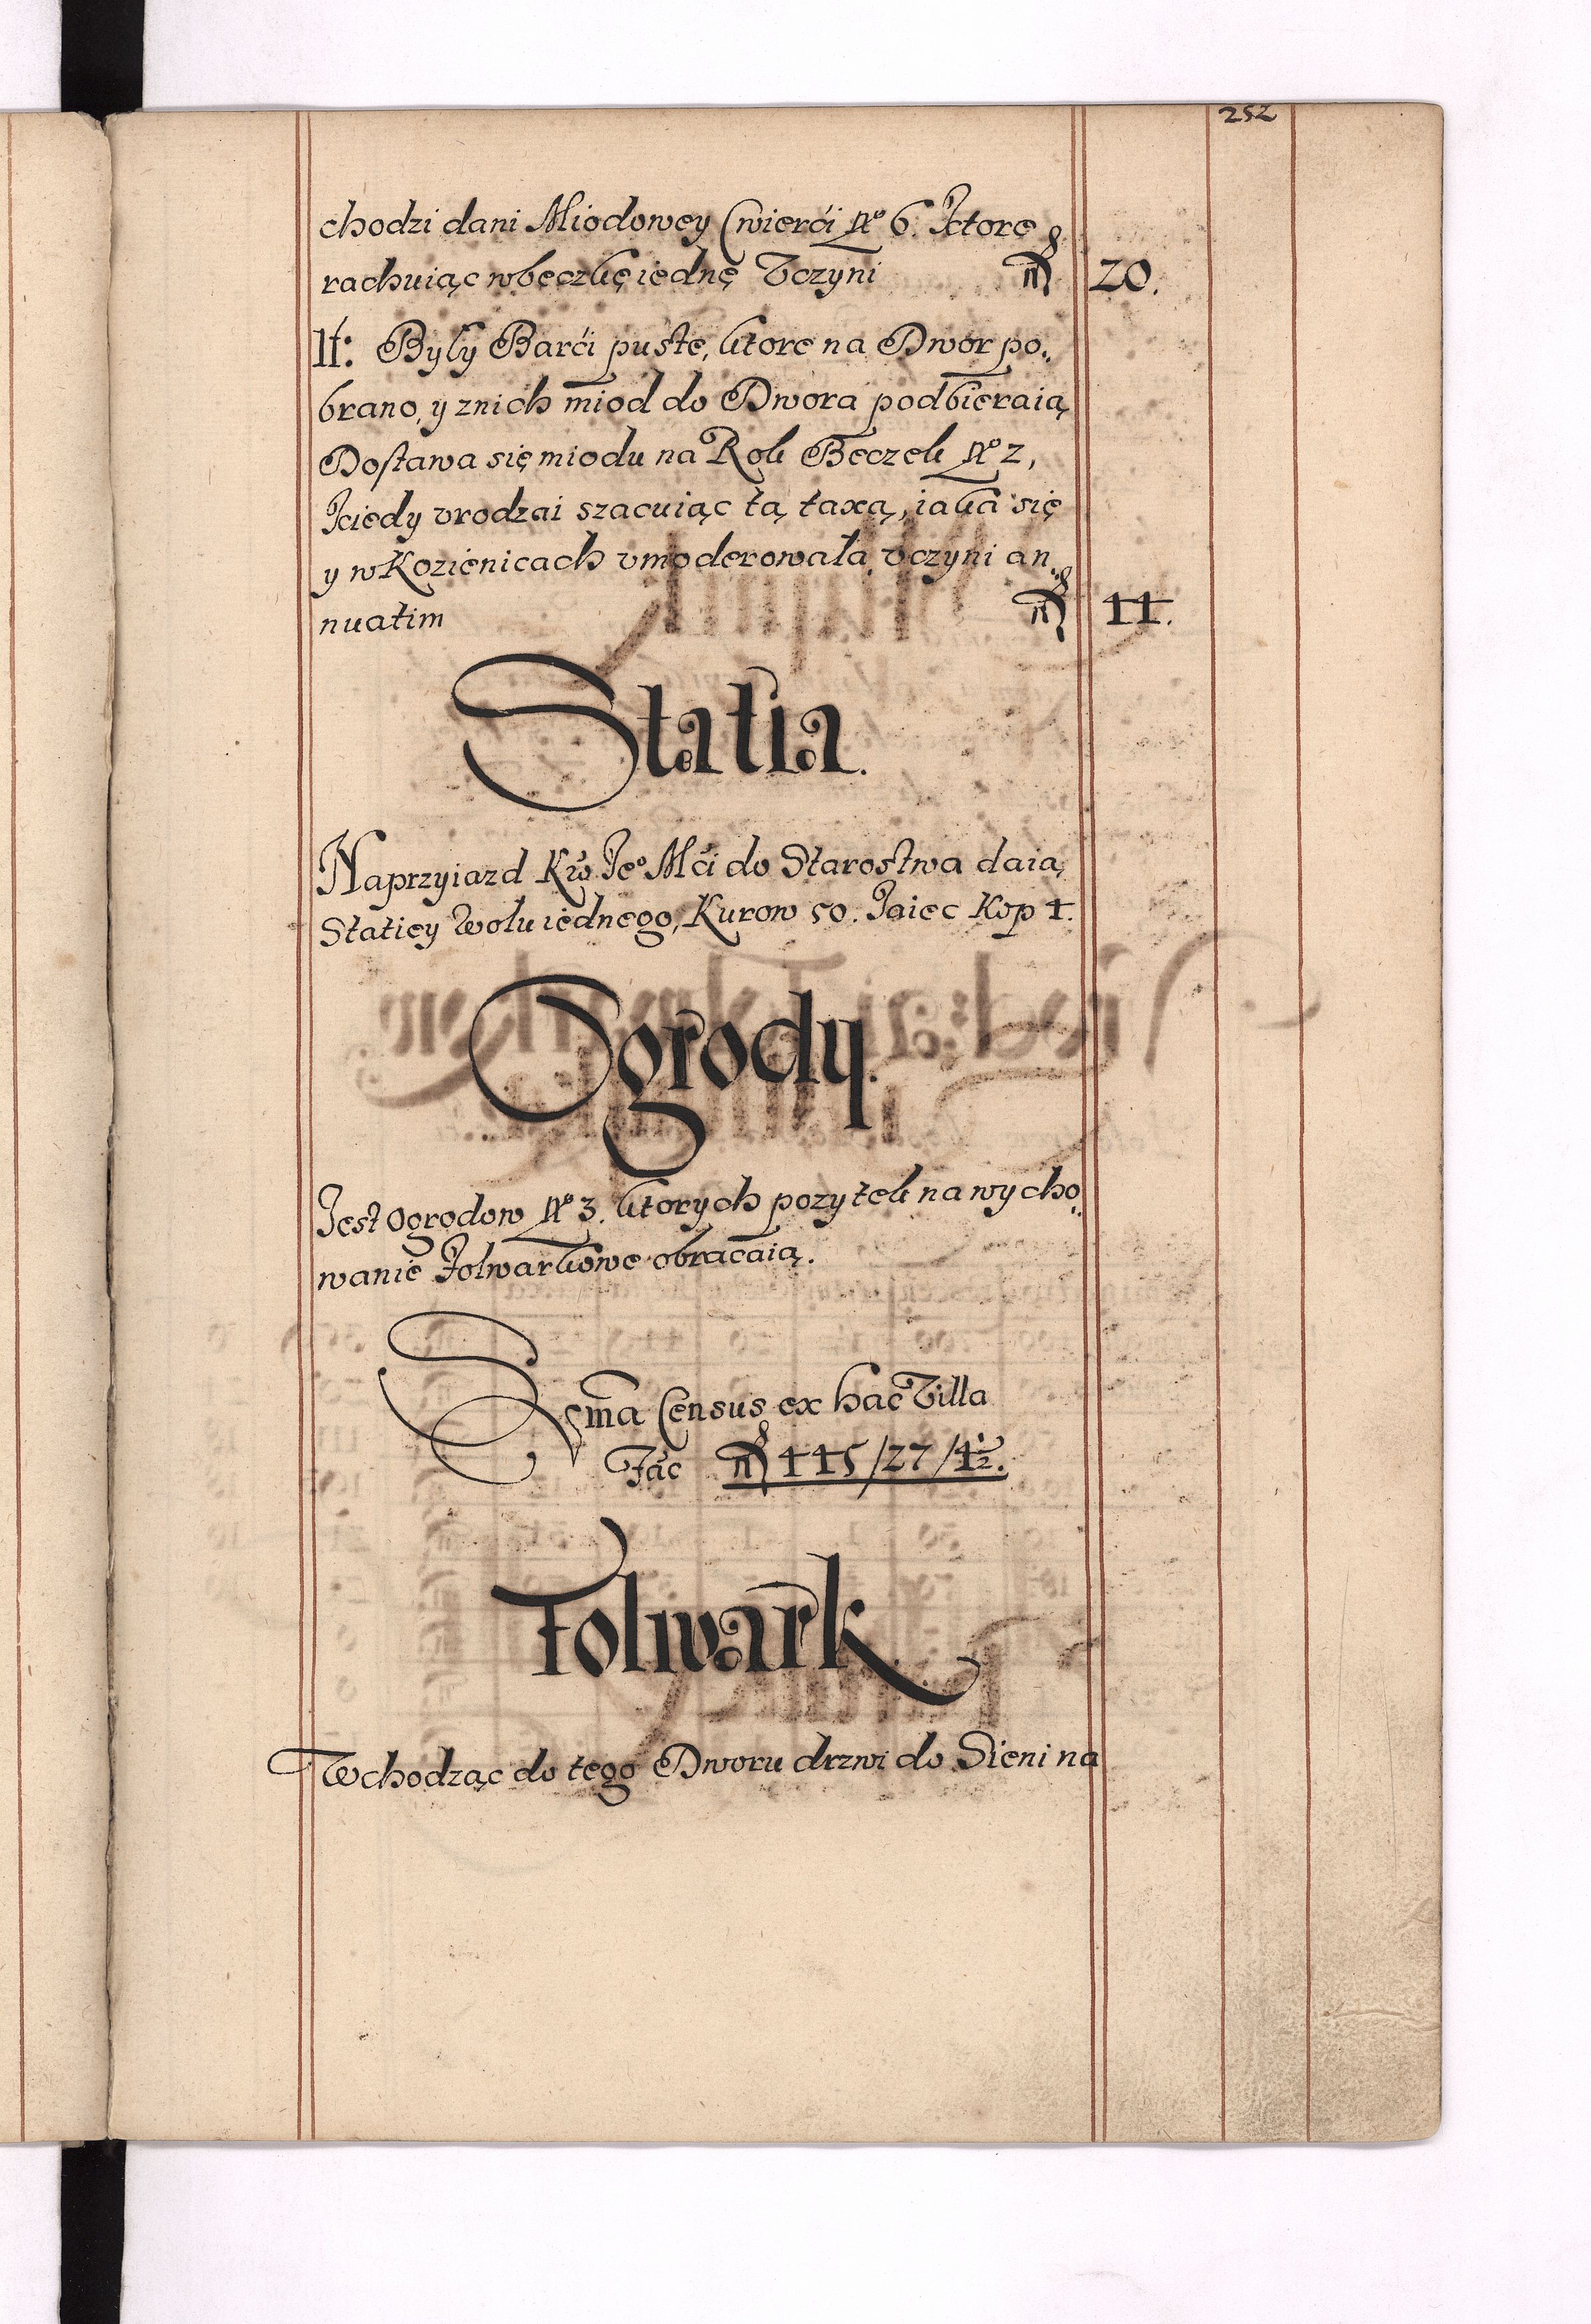 252
chodzi dani Miodowey Cwierći No 6. Ktore
rachuiąc wbeczkę iednę Vczyni fl 20.
It: Były Barći puste, ktore na Dwor po„
brano, y znich miod do Dwora podbieraią
Dostawa się miodu na Rok Beczek No 2,
Kiedy vrodzai szacuiąc tą taxą, iaka się
y w Kozienicach vmoderowała vczyni an„
nuatim fl 44.
Statia.
Naprzyiazd Kro Jeo Mći do Starostwa daią
Statiey Wołu iednego, Kurow 50. Jaiec Kop 4.
Ogrody.
Jest Ogrodow No 3. ktorych pozytek na wycho„
wanie Folwarkowe obracaią.
Sma Census ex hac Villa
Fac fl 445/27/4½.
Folwark
Wchodząc do tego Dworu drzwi do Sieni na